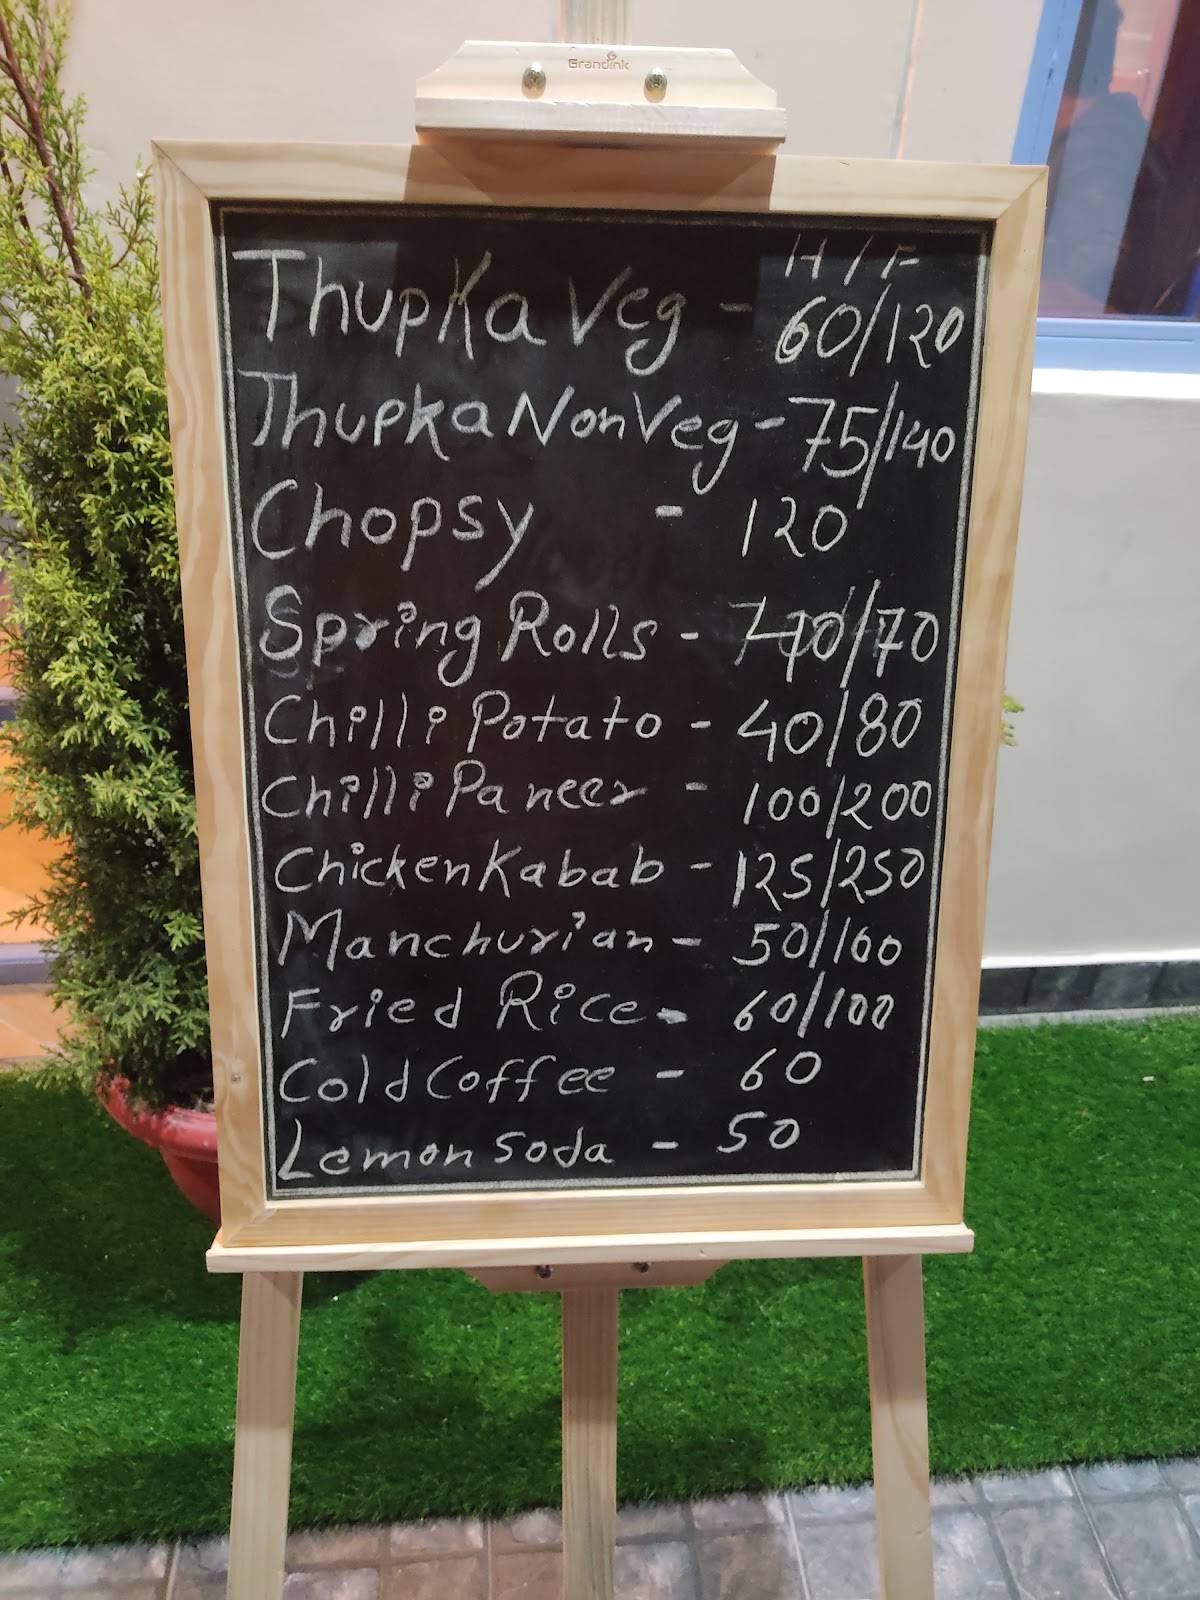 Grandink
H/F
Thupka Veg - 60/120
Thupka Non Veg - 75/140
Chopsy - 120
Spring Rolls - /70
Chilli Potato - 40/80
Chilli Paneer - 100/200
Chicken Kabab - 125/250
Manchurian - 50/100
Fried Rice - 60/100
Cold Coffee - 60
Lemon Soda - 50